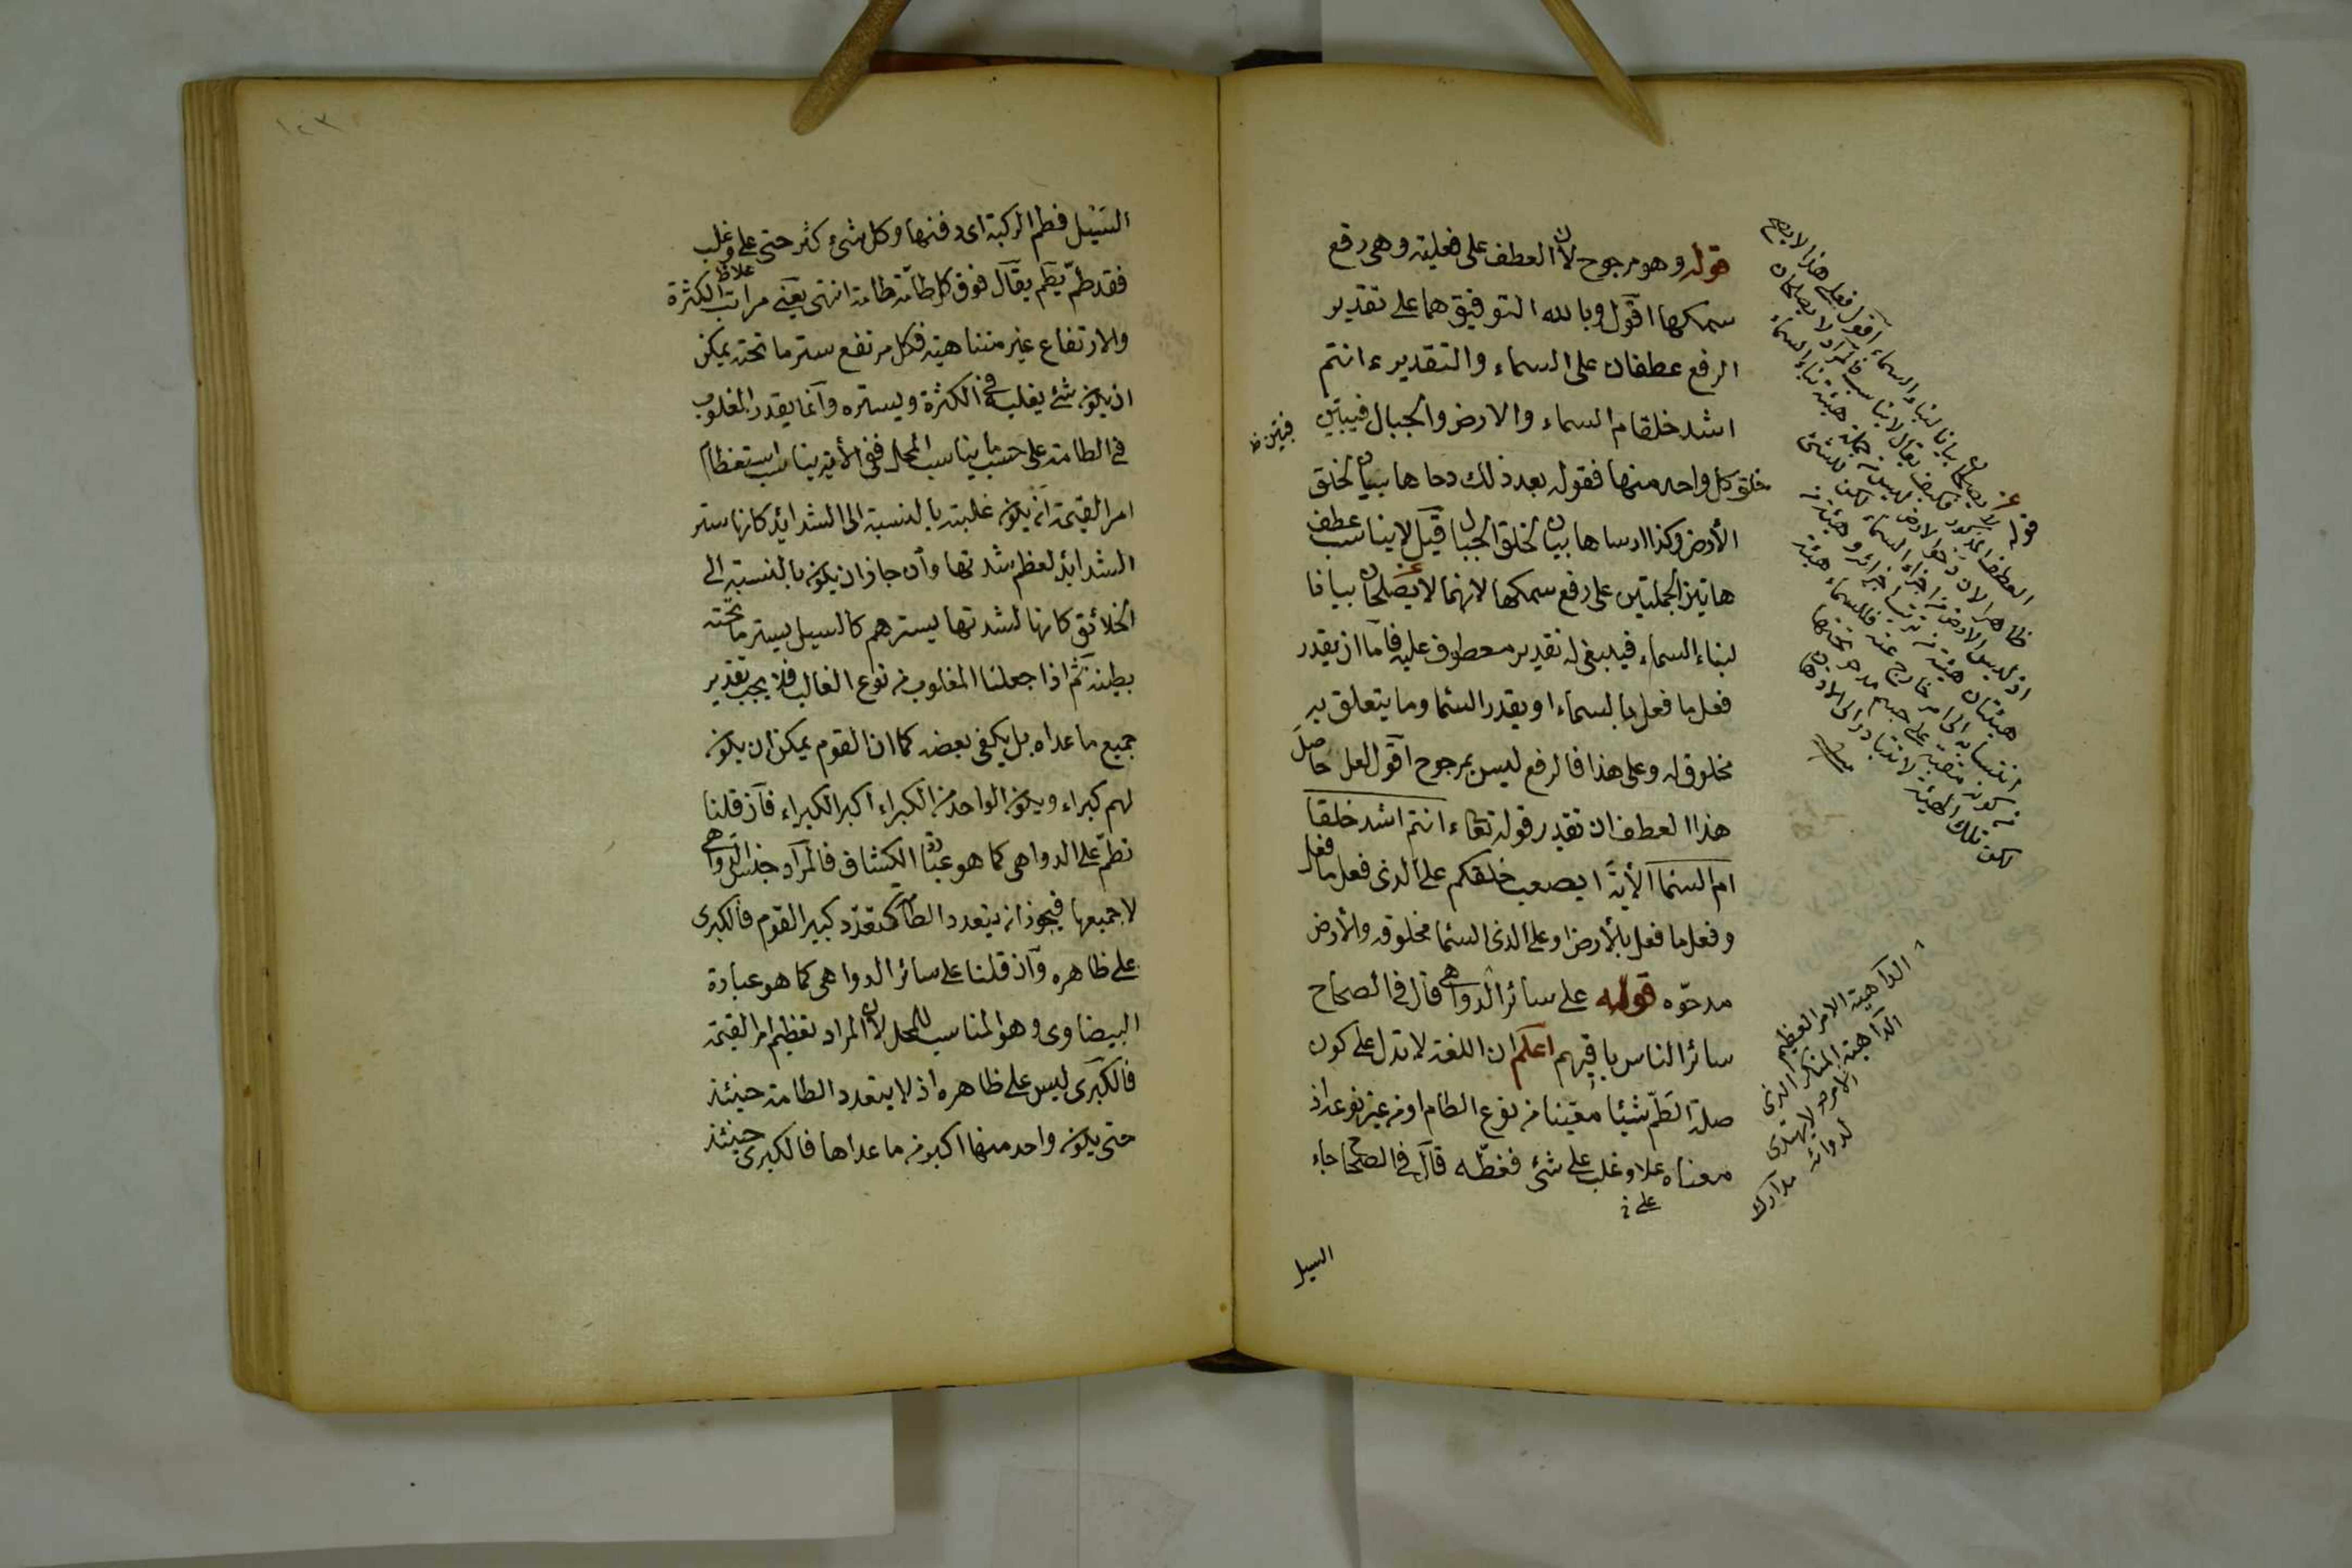 قوله وهو مرجوح لان العطف على فعلية وهى رفع
سمكها اقول وبالله التوفيق هما على تقدير
الرفع عطفان على السماء والتقدير ءانتم
اشد خلقا ام السماء والارض والجبال فيبين
خلق كل واحد منها فقوله بعد ذلك دحاها بيان لخلق
الأرض وكذا ارساها بيان لخلق الجبال قيل لا يناسب عطف
هاتين الجملتين على رفع سمكها لانهما لا يصلحان بيانا
لبناء السماء فينبغى له تقدير معطوف عليه فاما ان يقدر
فعل ما فعل بالسماء او يقدر السما وما يتعلق به
مخلوق له وعلى هذا فالرفع ليس بمرجوح اقول لعل حاصل
هذا العطف ان تقدير قوله تعا ءانتم اشد خلقا
ام السما الأية ايصعب خلقكم على الذى فعل ما فعل
وفعل ما فعل بالأرض او على الذى السما مخلوقه والأرض
مدحوه قوله على سائر الدواهى قال فى الصحاح
سائر الناس باقيهم اعلم ان اللغة لا تدل على كون
صلة الطم شيئا معينا من نوع الطام او من غير نوعه اذ
معناه علا وغلب على شئ فغطه قال فى الصحاح جاء
على
السيل
قوله لا يصلحان بيانا لبناء السماء اقول فعلى هذا لا يصح
العطف المذكور فكيف يقال لا يناسب فالمراد لا يصلحان
ظاهرا لان دحو الارض ليس من جملة هيئة بناء السماء
اذ ليس الارض من اجزاء السماء لكن للشئ
هيئتان هيئة من ترتيب اجزائه وهيئة من
انتسابه الى امر خارج عنه فللسماء هيئة
من كونه منضبة على جسم مدحو تحتها
لكن تلك الهيئة لا يتبادر الى الاذهان
الداهية الامر العظيم
الداهية المنكر الذى
لا يهتدى
لدوائه مدارك
السيل فطم الركية اى دفنها وكل شئ كثر حتى على وغلب
فقد طم يطم يقال فوق كل طامة طامة انتهى يعنى مراتب الكثرة
والارتفاع غير متناهية فكل مرتفع ستر ما تحته يمكن
ان يكون شئ يغلبه فى الكثرة ويستره وانما يقدر المغلوب
فى الطامة على حسب ما يناسب المحل ففى الأية يناسب استعظام
امر القيمة ان يكون غلبته بالنسبة الى الشدايد كانها ستر
الشدايد لعظم شدتها وان جاز ان يكون بالنسبة الى
الخلائق كانها لشدتها يسترهم كالسيل يستر ما تحته
بطينه ثم اذا جعلنا المغلوب من نوع الغالب فلا يجب تقدير
جميع ما عداه بل يكفى بعضه كما ان القوم يمكن ان يكون
لهم كبراء ويكون الواحد من الكبراء اكبر الكبراء فان قلنا
تطم على الدواهى كما هو عبارة الكشاف فالمراد جنس الدواهى
لا جميعها فيجوز ان يتعدد الطامة كتعدد كبير القوم فالكبرى
على ظاهره وان قلنا على سائر الدواهى كما هو عبارة
البيضاوى وهو المناسب للمحل لان المراد تعظيم امر القيمة
فالكبرى ليس على ظاهره اذ لا يتعدد الطامة حينئذ
حتى يكون واحد منها اكبر من ما عداها فالكبرى حينئذ